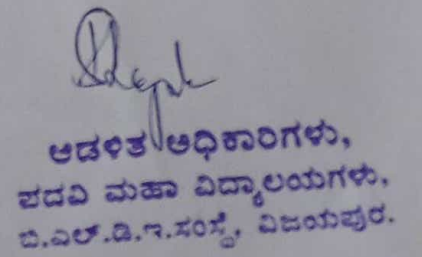 ಆಡಳಿತ ಅಧಿಕಾರಿಗಳು,
ಪದವಿ ಮಹಾ ವಿದ್ಯಾಲಯಗಳು,
ಬಿ.ಎಲ್.ಡಿ.ಇ.ಸಂಸ್ಥೆ, ವಿಜಯಪುರ.